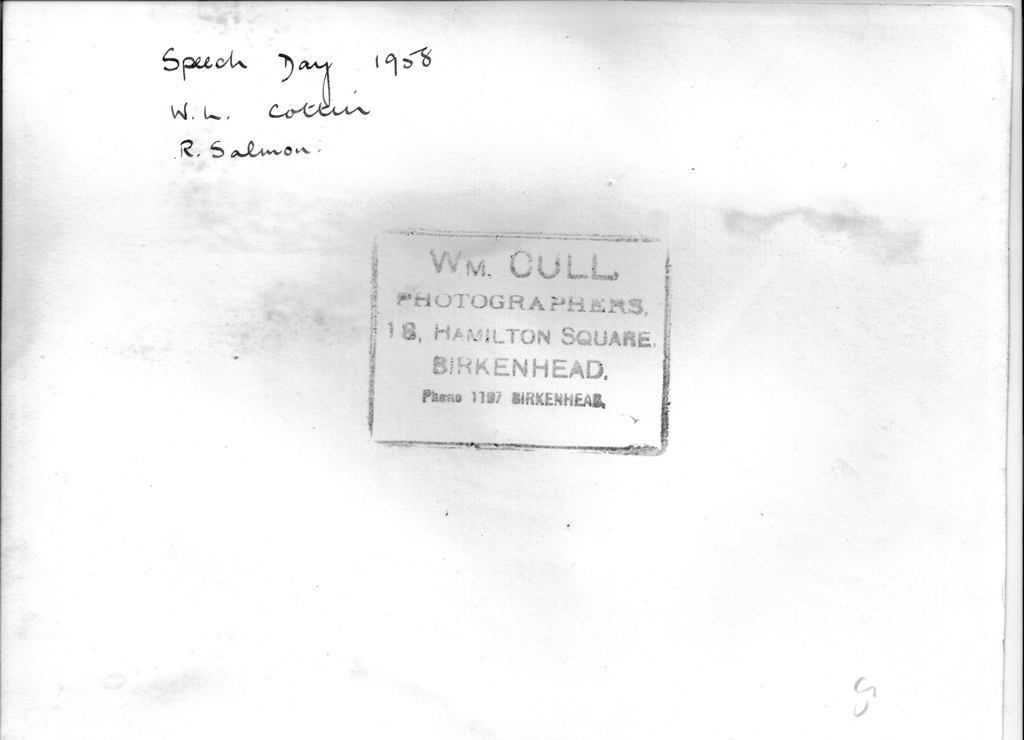 Speech Day 1958
W. L. Cottier
R. Salmon.
WM. CULL,
PHOTOGRAPHERS,
18, HAMILTON SQUARE,
BIRKENHEAD,
Phone 1197 BIRKENHEAD,